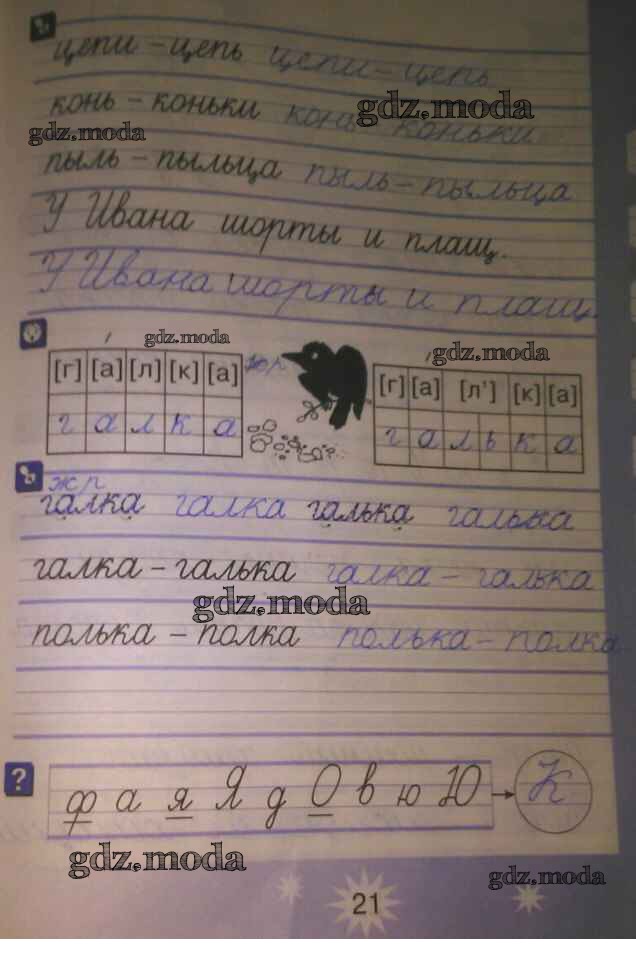 цепи - цепь цепи - цепь
конь - коньки конь - коньки
gdz.moda
gdz.moda
пыль - пыльца пыль - пыльца
У Ивана шорты и плащ.
У Ивана шорты и плащ.
gdz.moda
gdz.moda
[г] [а] [л] [к] [а]
[г] [а] [л'] [к] [а]
г а л к а
г а л ь к а
ж р
галка галка галька галька
галка - галька галка - галька
gdz.moda
полька - полка полька - полка
? ф а я Я д О в ю Ю К
gdz.moda
gdz.moda
21